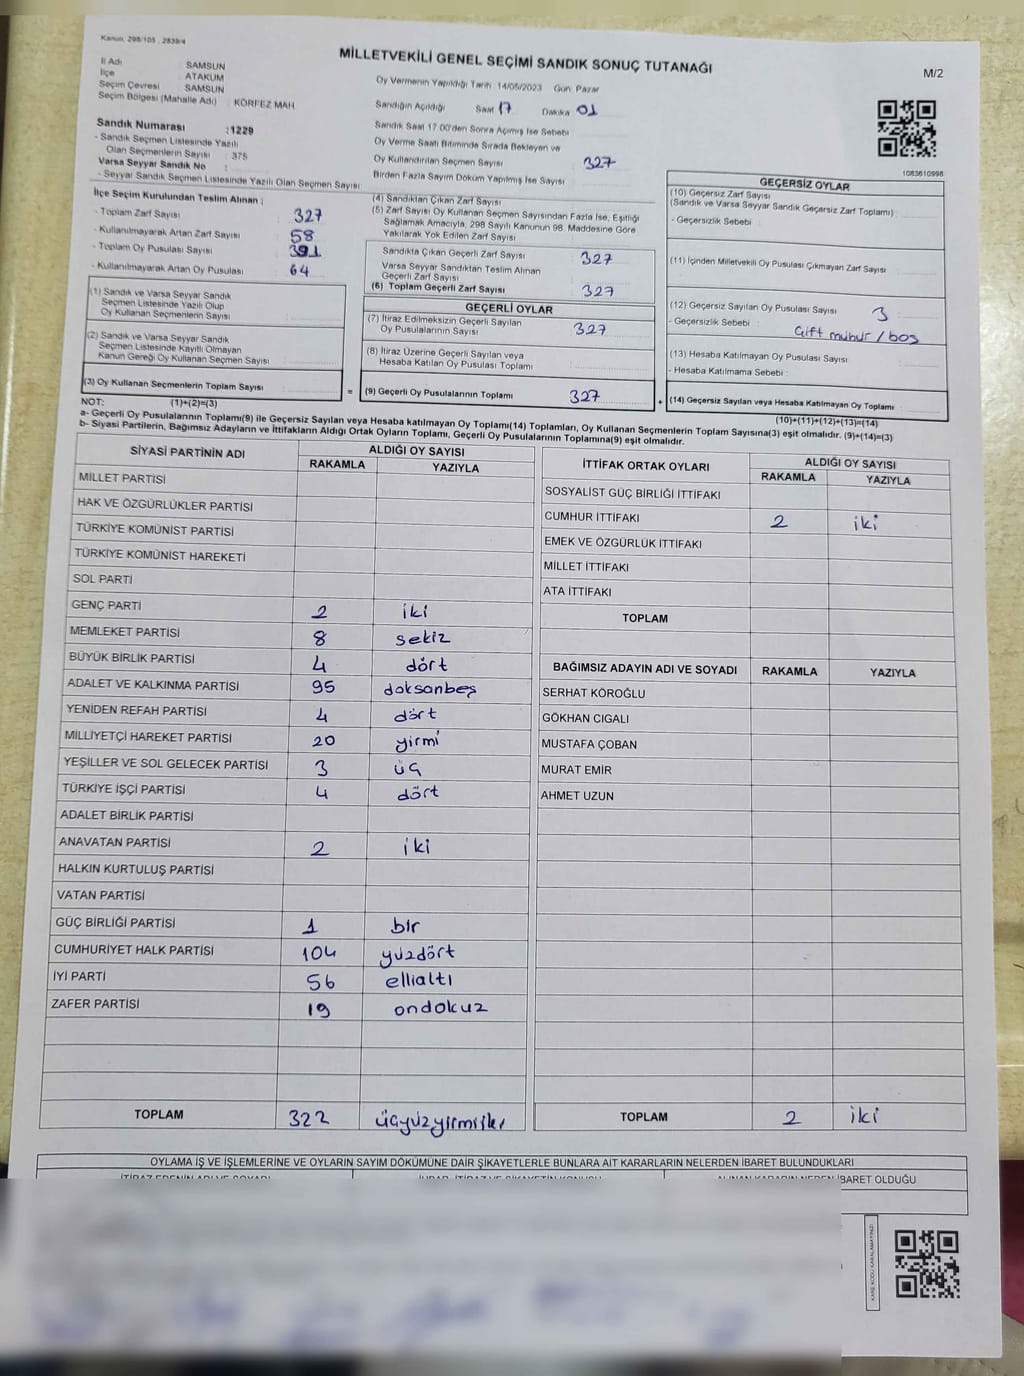 Kanun, 298/105 , 2839/4
MİLLETVEKİLİ GENEL SEÇİMİ SANDIK SONUÇ TUTANAĞI
M/2
İl Adı SAMSUN
İlçe ATAKUM
Seçim Çevresi SAMSUN
Seçim Bölgesi (Mahalle Adı) : KÖRFEZ MAH
Oy Vermenin Yapıldığı Tarih 14/05/2023 Gün Pazar
Sandığın Açıldığı Saat 17 Dakika 01
Sandık Saat 17.00'den Sonra Açılmış İse Sebebi
Oy Verme Saati Bitiminde Sırada Bekleyen ve
Oy Kullandırılan Seçmen Sayısı 327
Birden Fazla Sayım Döküm Yapılmış İse Sayısı
Sandık Numarası :1229
- Sandık Seçmen Listesinde Yazılı
Olan Seçmenlerin Sayısı : 375
Varsa Seyyar Sandık No :
- Seyyar Sandık Seçmen Listesinde Yazılı Olan Seçmen Sayısı
1083610998
İlçe Seçim Kurulundan Teslim Alınan ;
- Toplam Zarf Sayısı : 327
- Kullanılmayarak Artan Zarf Sayısı : 58
- Toplam Oy Pusulası Sayısı : 391
- Kullanılmayarak Artan Oy Pusulası : 64
(1) Sandık ve Varsa Seyyar Sandık
Seçmen Listesinde Yazılı Olup
Oy Kullanan Seçmenlerin Sayısı
(2) Sandık ve Varsa Seyyar Sandık
Seçmen Listesinde Kayıtlı Olmayan
Kanun Gereği Oy Kullanan Seçmen Sayısı
(3) Oy Kullanan Seçmenlerin Toplam Sayısı
(4) Sandıktan Çıkan Zarf Sayısı
(5) Zarf Sayısı Oy Kullanan Seçmen Sayısından Fazla İse, Eşitliği
Sağlamak Amacıyla, 298 Sayılı Kanunun 98. Maddesine Göre
Yakılarak Yok Edilen Zarf Sayısı
Sandıkta Çıkan Geçerli Zarf Sayısı 327
Varsa Seyyar Sandıktan Teslim Alınan
Geçerli Zarf Sayısı
(6) Toplam Geçerli Zarf Sayısı 327
GEÇERLİ OYLAR
(7) İtiraz Edilmeksizin Geçerli Sayılan
Oy Pusulalarının Sayısı 327
(8) İtiraz Üzerine Geçerli Sayılan veya
Hesaba Katılan Oy Pusulası Toplamı
= (9) Geçerli Oy Pusulalarının Toplamı 327
GEÇERSİZ OYLAR
(10) Geçersiz Zarf Sayısı
(Sandık ve Varsa Seyyar Sandık Geçersiz Zarf Toplamı) :
- Geçersizlik Sebebi :
(11) İçinden Milletvekili Oy Pusulası Çıkmayan Zarf Sayısı
(12) Geçersiz Sayılan Oy Pusulası Sayısı 3
- Geçersizlik Sebebi : Çift mühür / boş
(13) Hesaba Katılmayan Oy Pusulası Sayısı
- Hesaba Katılmama Sebebi :
+ (14) Geçersiz Sayılan veya Hesaba Katılmayan Oy Toplamı
NOT: (1)+(2)=(3) (10)+(11)+(12)+(13)=(14)
a- Geçerli Oy Pusulalarının Toplamı(9) ile Geçersiz Sayılan veya Hesaba katılmayan Oy Toplamı(14) Toplamları, Oy Kullanan Seçmenlerin Toplam Sayısına(3) eşit olmalıdır. (9)+(14)=(3)
b- Siyasi Partilerin, Bağımsız Adayların ve İttifakların Aldığı Ortak Oyların Toplamı, Geçerli Oy Pusulalarının Toplamına(9) eşit olmalıdır.
SİYASİ PARTİNİN ADI ALDIĞI OY SAYISI
RAKAMLA YAZIYLA
MİLLET PARTİSİ
HAK VE ÖZGÜRLÜKLER PARTİSİ
TÜRKİYE KOMÜNİST PARTİSİ
TÜRKİYE KOMÜNİST HAREKETİ
SOL PARTİ
GENÇ PARTİ 2 iki
MEMLEKET PARTİSİ 8 sekiz
BÜYÜK BİRLİK PARTİSİ 4 dört
ADALET VE KALKINMA PARTİSİ 95 doksanbeş
YENİDEN REFAH PARTİSİ 4 dört
MİLLİYETÇİ HAREKET PARTİSİ 20 yirmi
YEŞİLLER VE SOL GELECEK PARTİSİ 3 üç
TÜRKİYE İŞÇİ PARTİSİ 4 dört
ADALET BİRLİK PARTİSİ
ANAVATAN PARTİSİ 2 iki
HALKIN KURTULUŞ PARTİSİ
VATAN PARTİSİ
GÜÇ BİRLİĞİ PARTİSİ 1 bir
CUMHURİYET HALK PARTİSİ 104 yüzdört
İYİ PARTİ 56 ellialtı
ZAFER PARTİSİ 19 ondokuz
TOPLAM 322 üçyüzyirmiiki
İTTİFAK ORTAK OYLARI ALDIĞI OY SAYISI
RAKAMLA YAZIYLA
SOSYALİST GÜÇ BİRLİĞİ İTTİFAKI
CUMHUR İTTİFAKI 2 iki
EMEK VE ÖZGÜRLÜK İTTİFAKI
MİLLET İTTİFAKI
ATA İTTİFAKI
TOPLAM
BAĞIMSIZ ADAYIN ADI VE SOYADI RAKAMLA YAZIYLA
SERHAT KÖROĞLU
GÖKHAN CIGALI
MUSTAFA ÇOBAN
MURAT EMİR
AHMET UZUN
TOPLAM 2 iki
OYLAMA İŞ VE İŞLEMLERİNE VE OYLARIN SAYIM DÖKÜMÜNE DAİR ŞİKAYETLERLE BUNLARA AİT KARARLARIN NELERDEN İBARET BULUNDUKLARI
İTİRAZ EDENİN ADI VE SOYADI ALINAN KARARIN NEDEN İBARET OLDUĞU
KARE KODU KARALAMAYINIZ!